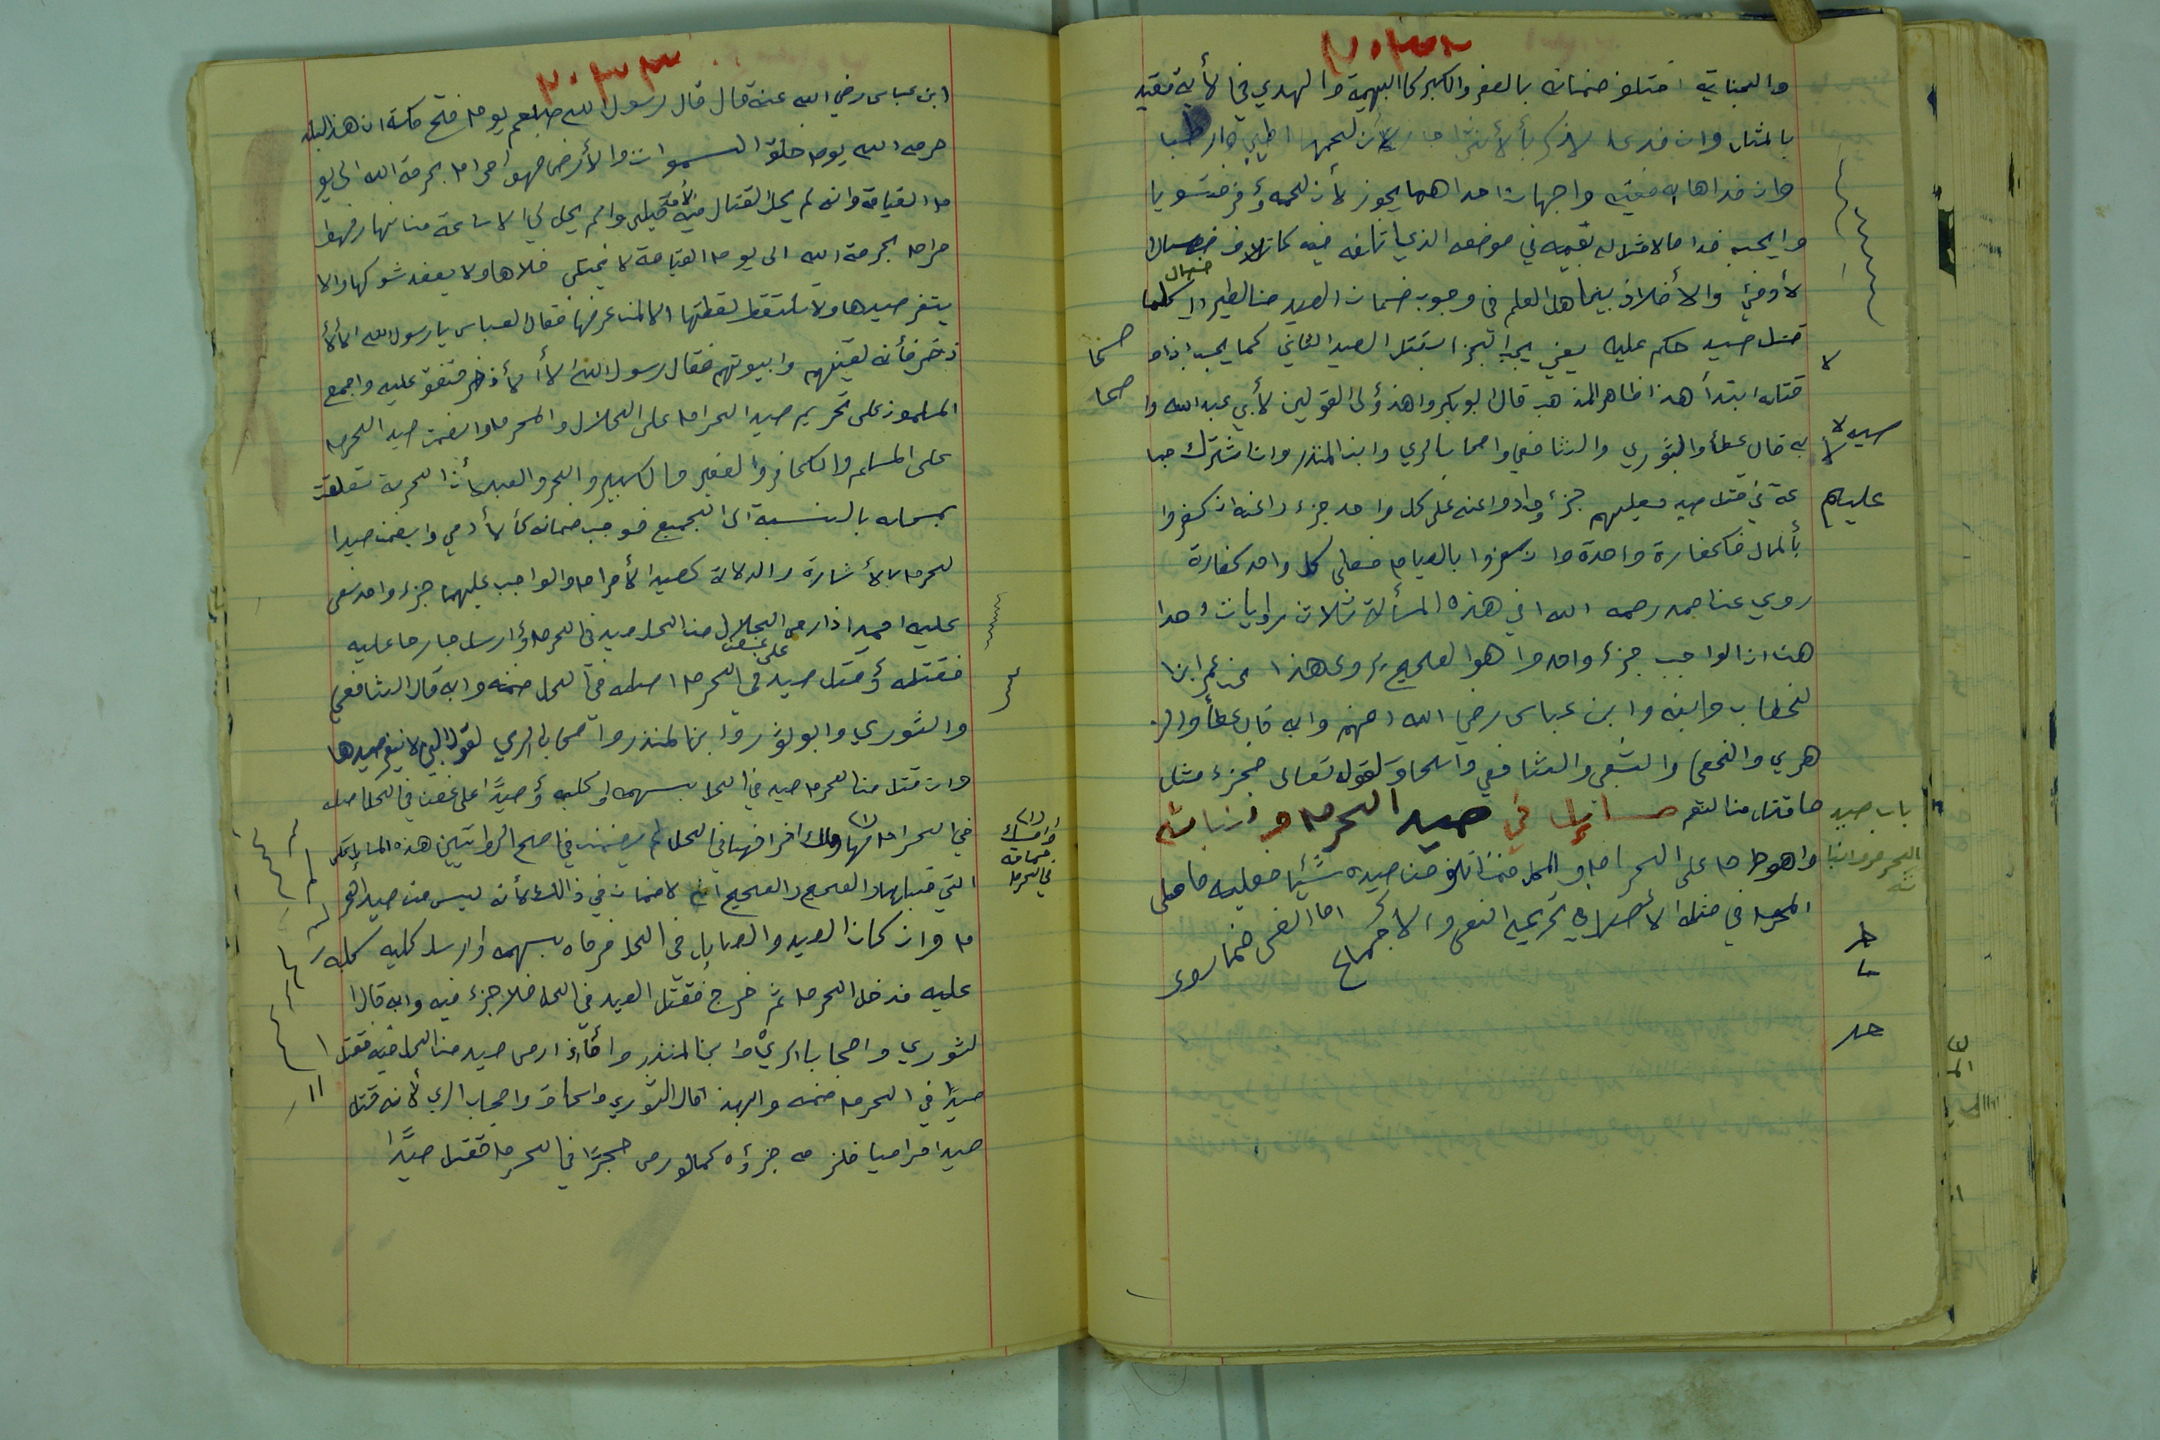 ٢٠٣٢
والجناية اختلف ضمانه بالصغر والكبر كالبهيمة والهدي في الأية مقيد
بالمثل وان فدى الذكر بالأنثا جاز لأن لحمها اطيب وارطبا
وان فداها به ففيه واجهان احداهما يجوز لأن لحمه أوفر فتسويا
وايجب فدا مالا مثل له بقيمه في موضعه الذي اتلفه فيه كاتلاف مال
لأدمي والأخلاف بين اهل العلم في وجوب ضمان الصيد من الطير كلما
قتل صيد حكم عليه يعني يجب الجزا بقتل الصيد الثاني كما يجب اذا
قتله ابتدأ هذا ظاهر المذهب قال ابو بكر واهذ أولى القولين لأبي عبد الله وا
به قال عطأ والثوري والشافعي واصحاب الري وابن المنذر وان اشترك جما
عة في قتل صيد فعليهم جزء واحد واعنه على كل واحد جزء واعنه ان كفروا
بألمال فكفارة واحدة وان كفروا بالصيام فعلى كل واحد كفارة
روي عن احمد رحمه الله في هذه المسألة ثلاث روايات احدا
هن ان الواجب جزء واحد وا هو الصحيح يروى هذا عن عمر ابن
لخطاب وابنه وابن عباس رضي الله عنهم وابه قال عطأ والز
هري والنخعي والشعبي والشافعي واسحاق لقوله تعالى فجزء مثل
ما قتل من النعم مسائل في صيد الحرم ونباته
واهو حرام على الحرام والمحل فمن اتلف من صيده شيئا فعليه ما على
المحرم في مثله الأصل في تحريمه النص والاجماع اما النص فما روى
صحا
صحا
لا
عليهم
باب صيد
الحرم ونبا
ته
٢٠٣٣
ابن عباس رضي الله عنه قال قال رسول الله صلعم يوم فتح مكة ان هذا البلد
حرمه الله يوم خلق السموات والأرض فهو احرام بحرمة الله الى يو
م القيامة وانه لم يحل القتال فيه لأحد قبلي والم يحل لي الا ساعة من نهار فهو
حرام بحرمة الله الى يوم القيامة لا يختلى خلاها ولا يعضد شوكها والا
ينفر صيدها ولا تلتقط لقطتها الا لمن عرفها فقال العباس يا رسول الله الا لأ
ذخر فأنه لقينهم وابيوتهم فقال رسول الله الا لأذخر متفق عليه واجمع
المسلموز على تحريم صيد الحرام على الحلال والمحرم وايضمن صيد الحرم
على المسلم والكافر والصغير والكبير والحر والعبد لأن الحرمة تعلقت
بمحله بالنسبة الى الجميع فوجب ضمانه كالأدمي وايضمن صيدا
لحرم بالأشارة والدلالة كصيد الأحرام والواجب عليهما جزء واحد نص
عليه احمد اذا رمى الحلال من الحل صيد في الحرم أو ارسل جارحا عليه
فقتله أو قتل صيد على غصن في الحرم اصله في الحل ضمنه وابه قال الشافعي
والثوري وابو ثور وابن لمنذر واصحاب الري لقول النبي لا ينفر صيدها
وان قتل من الحرم صيد في الحل بسهمه او كلبه أو صيدًا على غصن في الحل اصله
في الحرام افراخها في الحل لم يضمن في اصح الروايتين هذه المسأله عكس
التي قبلها والصحيح انه لا ضمان في ذالك لأنه ليس من صيد الحر
م وان كان الصيد والصايد في الحل فرماه بسهمه وارسل كلبه
عليه فدخل الحرم ثم خرج فقتل الصيد في الحل فلا جزء فيه وابه قال ا
لثوري واصحاب الري وابن المنذر وا اذا رمى صيد من الحل فقتل
صيدًا في الحرم ضمنه والهذا قال الثوري واسحاق واصحاب الري لأنه قتل
صيدا حراميا فلزمه جزؤه كمالو رمى حجرًا في الحرم فقتل صيدًا
وامسك
حمامة
في الحرم